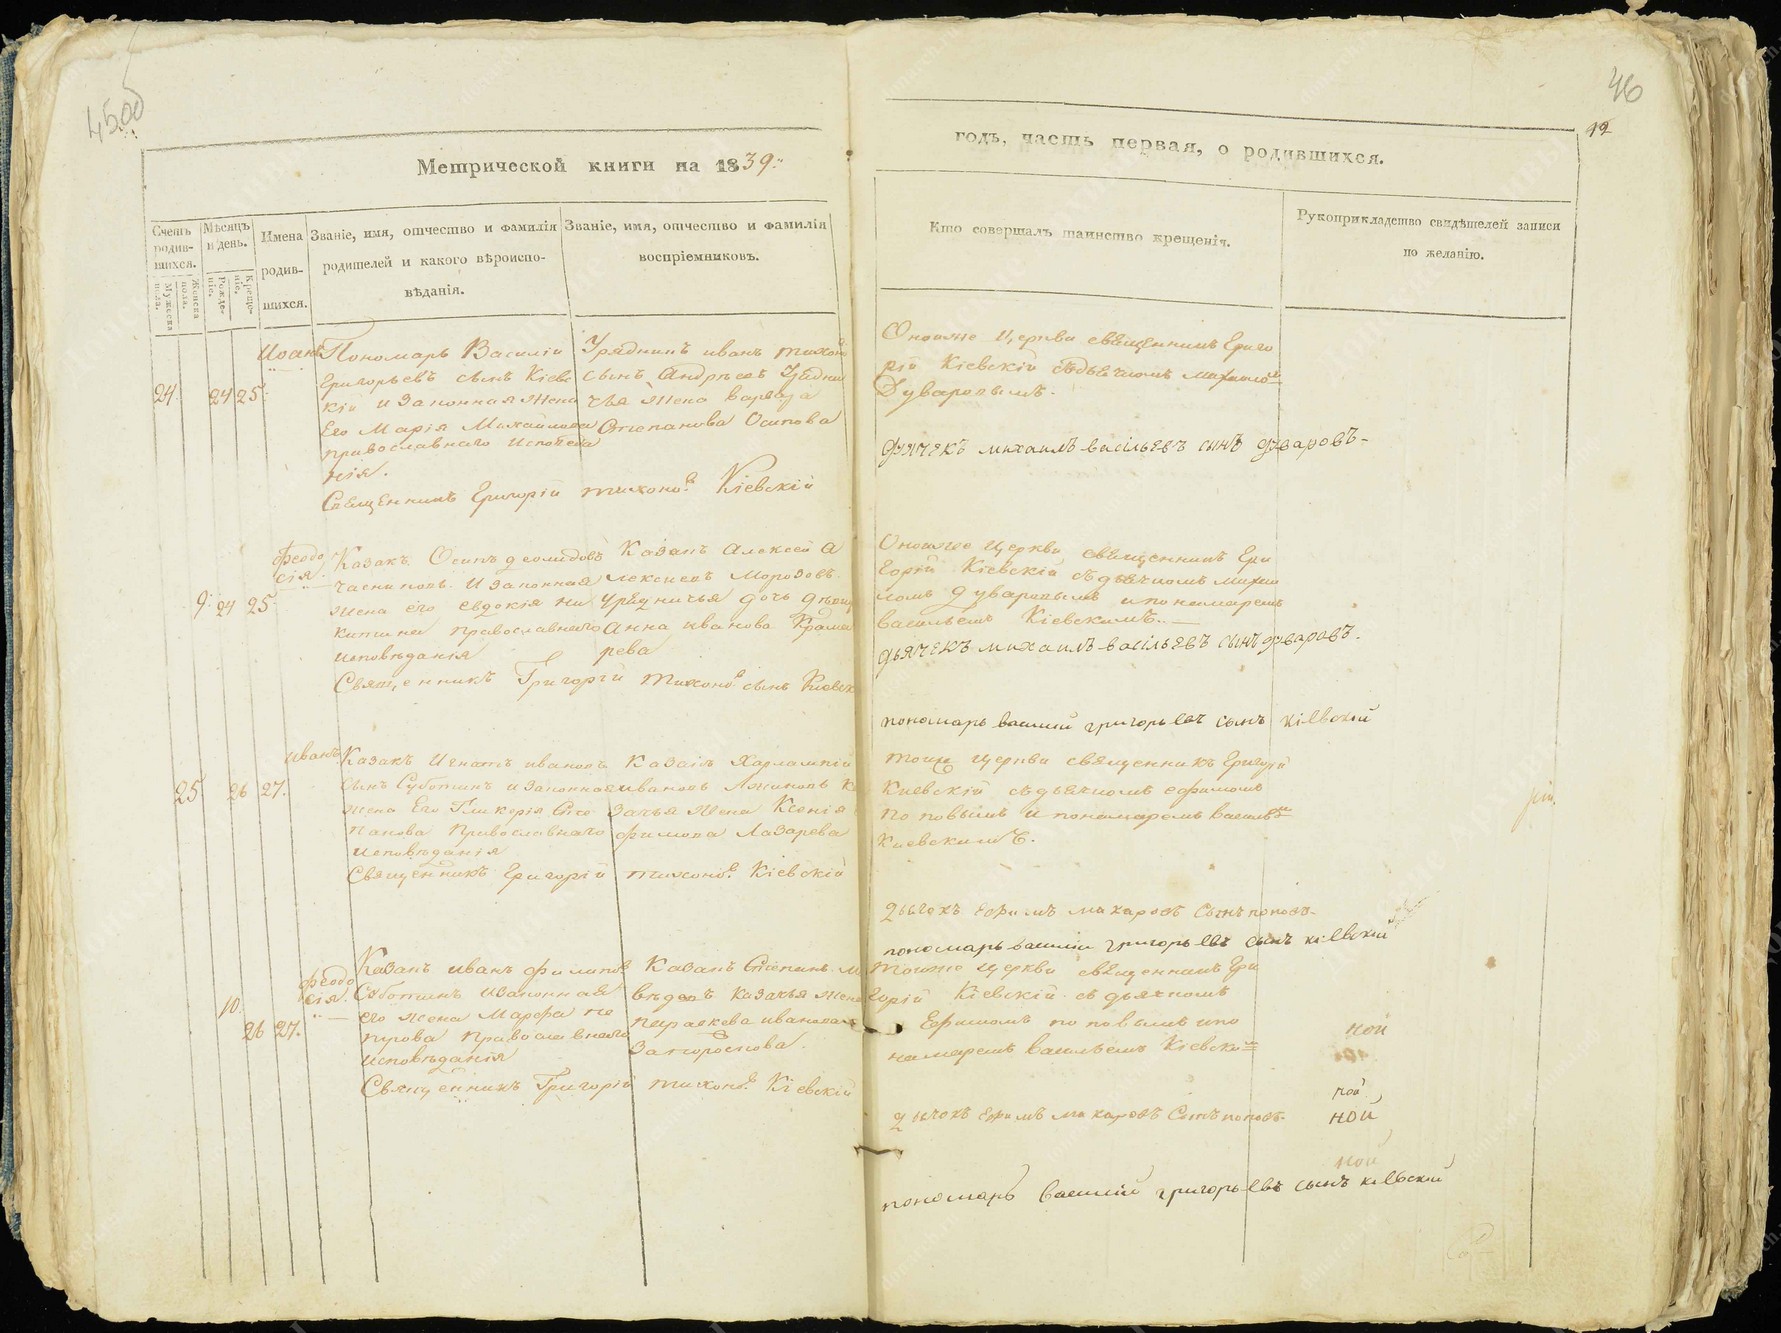 45об
46
12
Метрической книги на 1839:
годъ, часть первая, о родившихся.
Счетъ родив-шихся.
Мужеска пола.
Женска пола.
Мѣсяцъ и день.
Рожде-ніе.
Креще-ніе.
Имена
родив-
шихся.
Званіе, имя, отчество и фамилія
родителей и какого вѣроиспо-
вѣданія.
Званіе, имя, отчество и фамилія
воспріемниковъ.
Кто совершалъ таинство крещенія.
Рукоприкладство свидѣтелей записи
по желанію.
24. 24 25.
Иоанъ
Пономарь Василій
Григорьевъ сынъ Кіевс
кій и законная жена
Его Марія Михайлова
православнаго исповеда
нія.
Священникъ Григорій Тихоновъ Кіевскій
Урядникъ иванъ тихоно
сынъ Андреевъ Урядни
чья жена варвара
Степанова Осипова
Оноиже Церкви священникъ Григо
рій Кіевскій съдьячкомъ михаиломъ
Дуваровымъ.
дячекъ михаилъ васільевъ сынъ дуваровъ
9. 24 25.
Феодо
сія.
Казакъ Осипъ деомидовъ
и законная
жена его евдокія ни
китина православнаго
исповѣданія
Священникъ Григорій тихоновъ сынъ Киевск
Казакъ Алексей А
лексиевъ Морозовъ.
Урядничья дочь девиц
Анна иванова Крама
рева
Оноиже Церкви священникъ Гри
горій Кіевскій съдьячкомъ михаи
ломъ дуваровымъ ипономаремъ
васильемъ Кіевскимъ.
дьячекъ михаилъ васільевъ сынъ дуваровъ.
пономарь василий григорьевъ сынъ кіевский
25 26 27.
иванъ
Казакъ Игнатъ ивановъ
сынъ Суботинъ и законная
жена Его Гликерія Сте
панова Православнаго
исповѣданія
Священникъ Григорій тихоновъ Кіевскій
Казакъ Харлампій
ивановъ Логиновъ Ка
зачья жена Ксенія
фимова Лазарева
тоиже Церкви священникъ Григорій
Киевскій съдьячкомъ ефимомъ
Поповымъ и пономаремъ васильемъ
Киевскимъ.
дьячокъ Ефимъ макаровъ Сынъ поповъ
пономарь василий григорьевъ сынъ кіевский
10. 26 27.
Феодо
сія.
Казакъ иванъ филиповъ
Суботинъ изаконная
его жена Марефа Пе
трова православнаго
исповѣданія
Священникъ Григорій тихоновъ Кіевскій
Казакъ Степанъ М
казачья жена
параскева иванова
Запороскова.
Тоиже церкви священникъ Гри
горій Кіевскій съдьячкомъ
Ефимомъ поповымъ ипо
намаремъ васильемъ Кіевскимъ
дьячокъ Ефимъ макаровъ Сынъ поповъ
ной
ной
ной
ной
пономарь василий григорьевъ сынъ кіевский